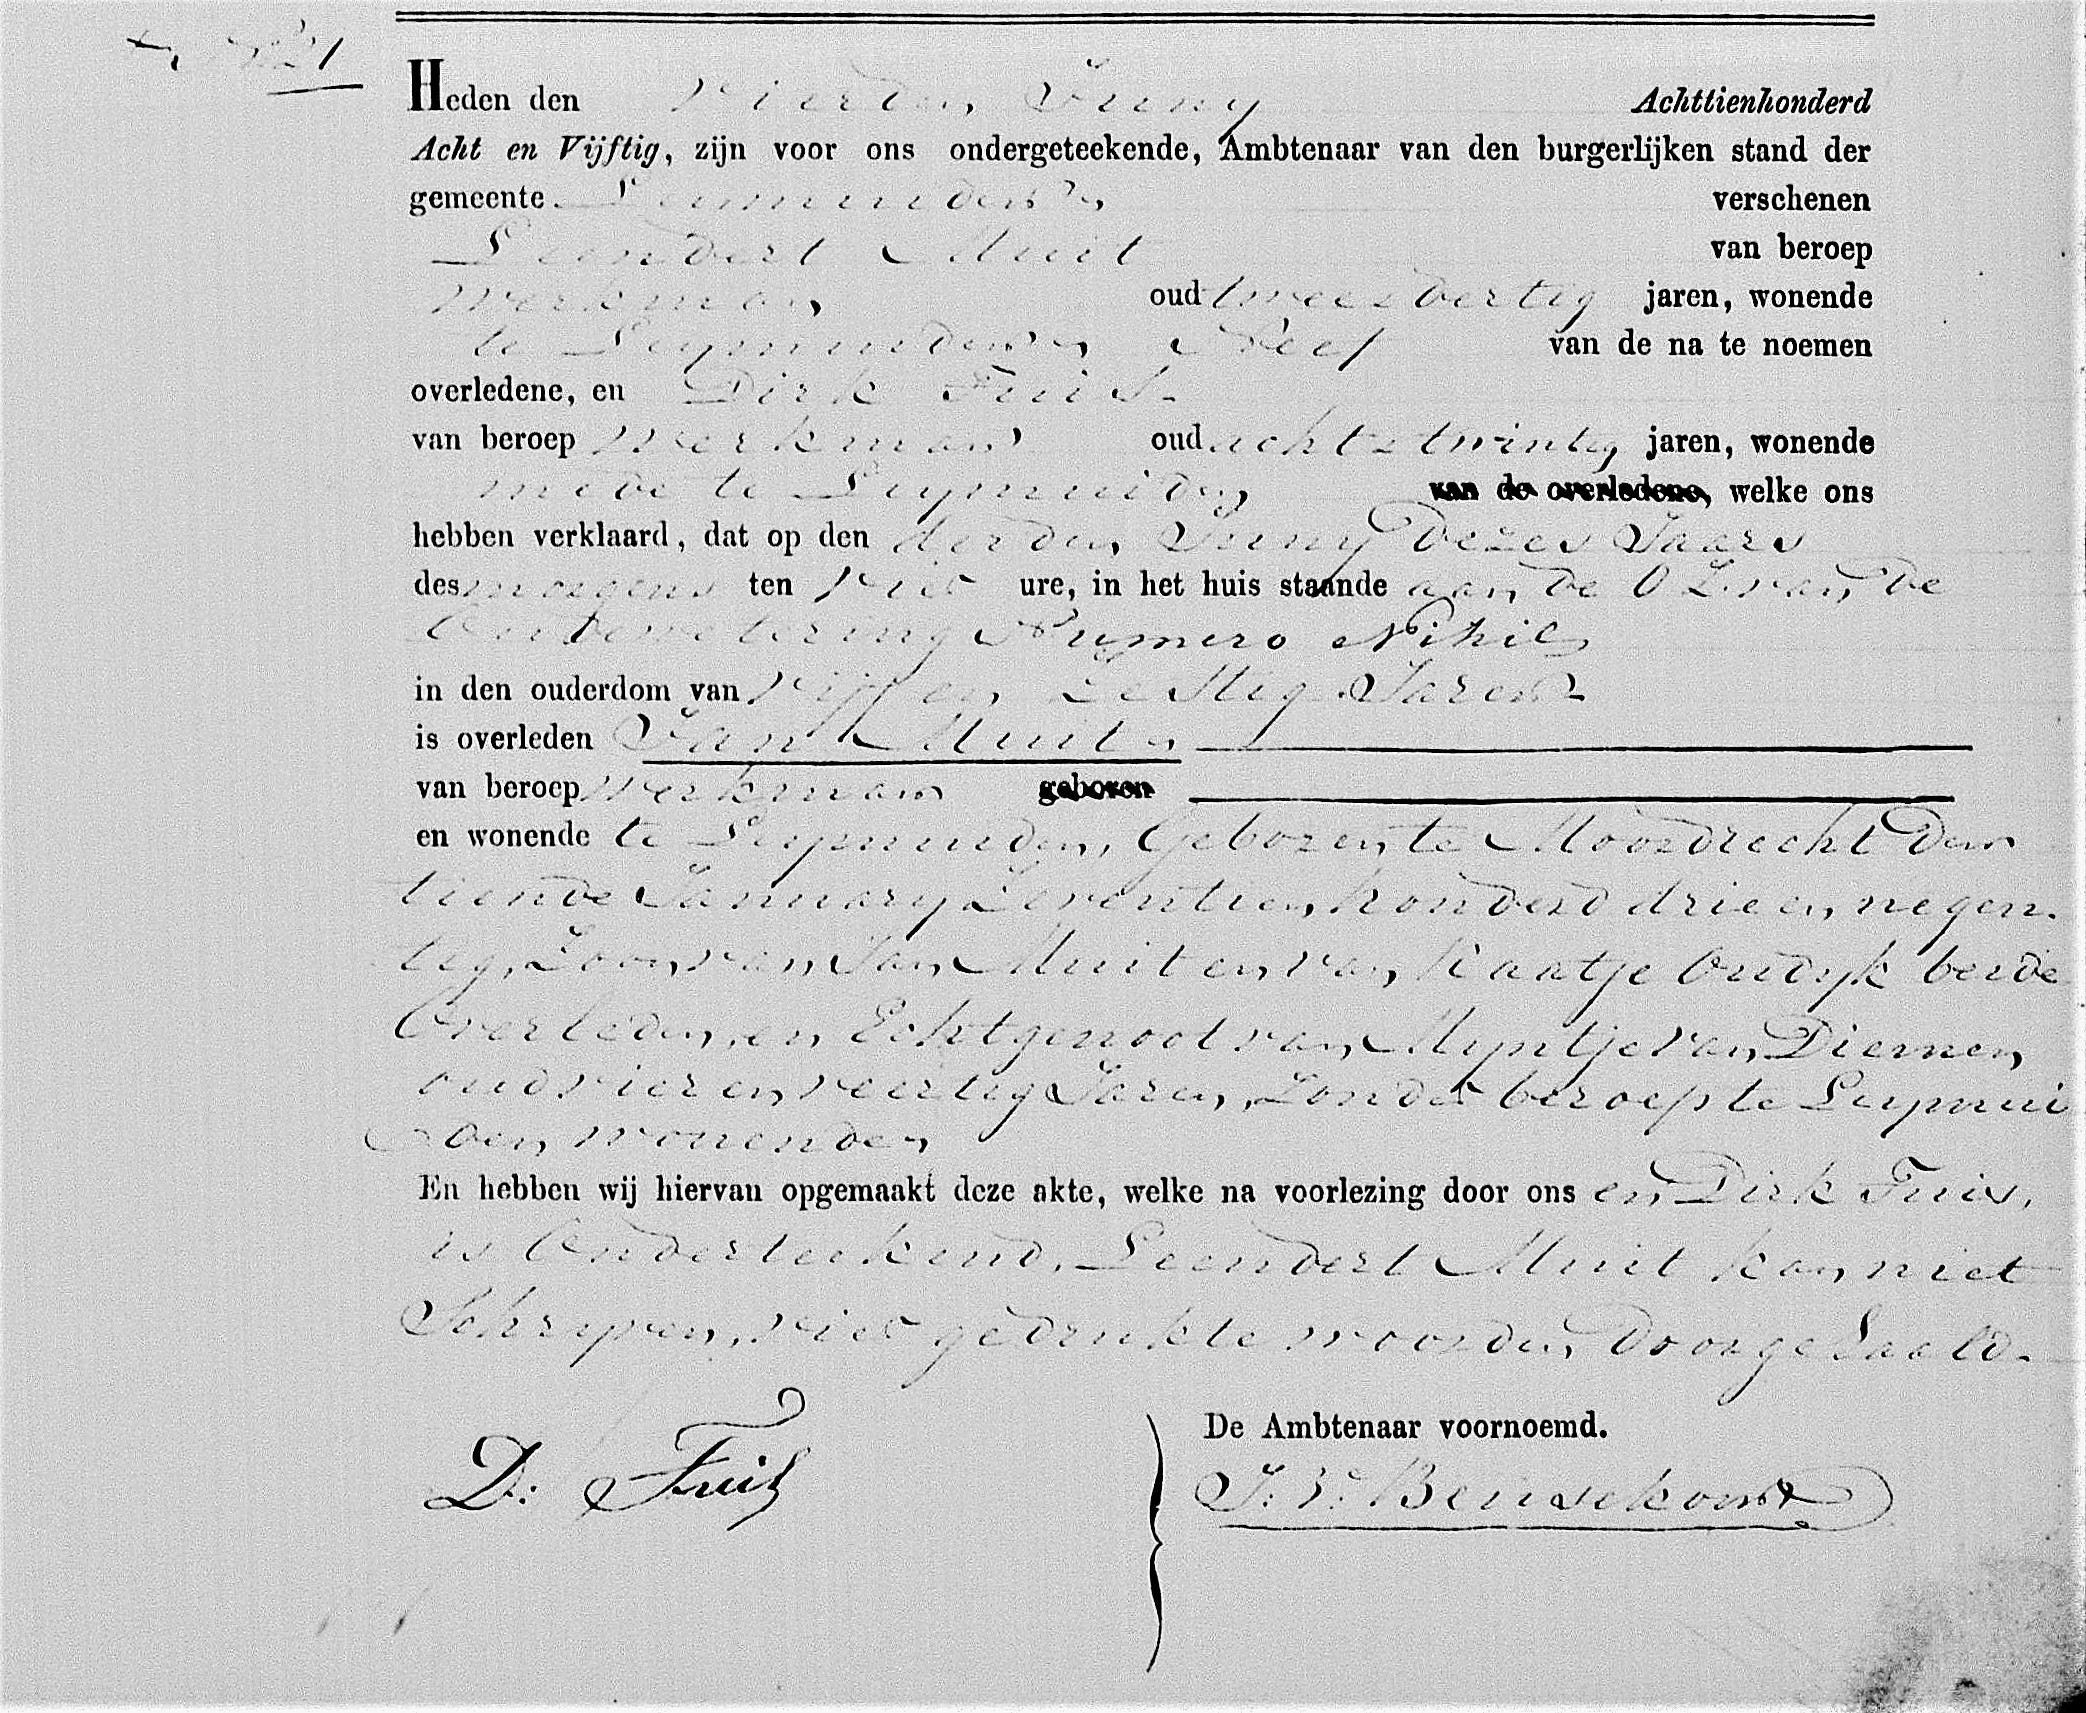 21
Heden den vierden Juny Achttienhonderd
Acht en Vijftig, zijn voor ons ondergeteekende, Ambtenaar van den burgerlijken stand der
gemeente Leimuiden verschenen
Leendert Muit van beroep
Werkman oud twee & dertig jaren, wonende
te Leymuiden, Neef van de na te noemen
overledene, en Dirk Fuis
van beroep Werkman oud acht & twintig jaren, wonende
mede te Leymuiden van de overledene, welke ons
hebben verklaard, dat op den derden Juny dezes Jaars
des morgens ten vier ure, in het huis staande aan de O Z. van de
Numero Nihil
in den ouderdom van Vijf en Zestig Jaren
is overleden Jan Muit
van beroep Werkman geboren
en wonende te Leymuiden, Geboren te Moordrecht den
tiende January Zeventien honderd drie en negen-
tig, Zoon van Jan Muit en van Kaatje Oudyk beide
Overleden, en Echtgenoot van Myntje van Diemen,
oud vier en veertig Jaren, Zonder beroep te Leymui
den wonende,
En hebben wij hiervan opgemaakt deze akte, welke na voorlezing door ons en Dirk Fuis,
is Onderteekend, Leendert Muit kan niet
Schryven, vier gedrukte woorden Doorgehaald.
De Ambtenaar voornoemd.
D: Fuis